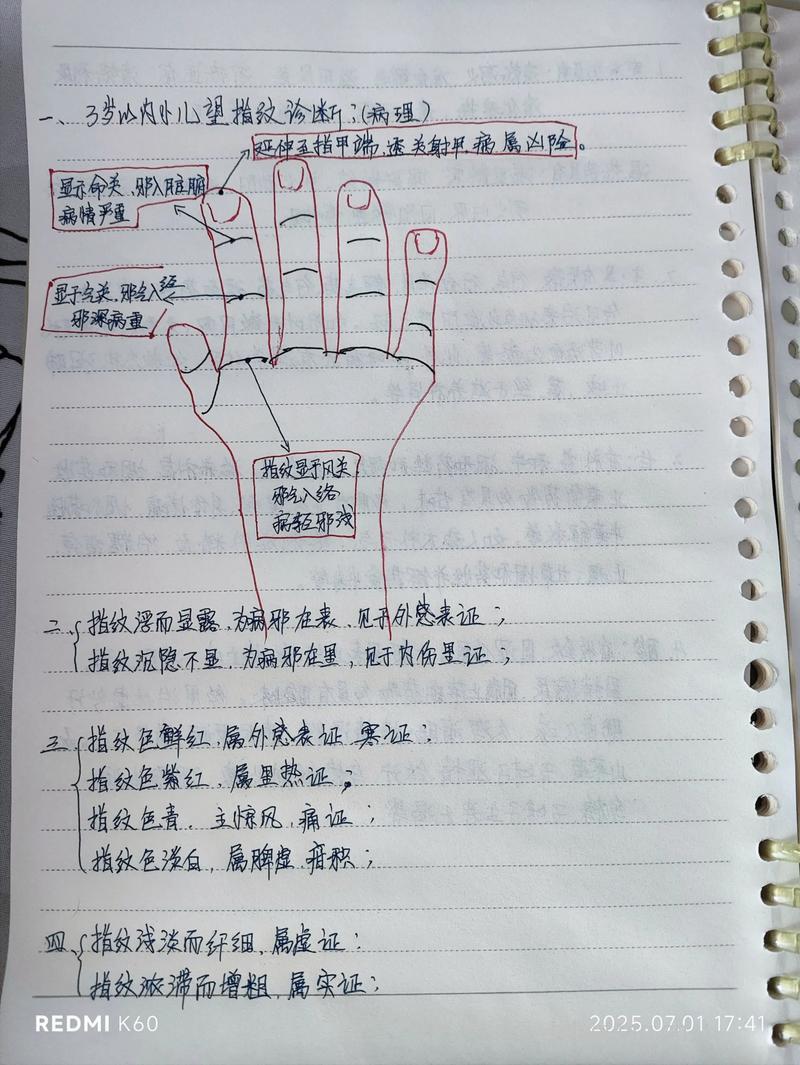 一、3岁以内小儿望指纹诊断：(病理)
延伸至指甲端，透关射甲，病属凶险。
显示命关，邪入脏腑
病情严重
显于气关，邪气入经
邪深病重
指纹显于风关
邪气入络
病轻邪浅
二、指纹浮而显露，为病邪在表，见于外感表证；
指纹沉隐不显，为病邪在里，见于内伤里证；
三、指纹色鲜红，属外感表证、寒证；
指纹色紫红，属里热证；
指纹色青，主惊风、痛证；
指纹色淡白，属脾虚、疳积；
四、指纹浅淡而纤细，属虚证：
指纹浓滞而增粗，属实证；
REDMI K60
2025.07.01 17:41